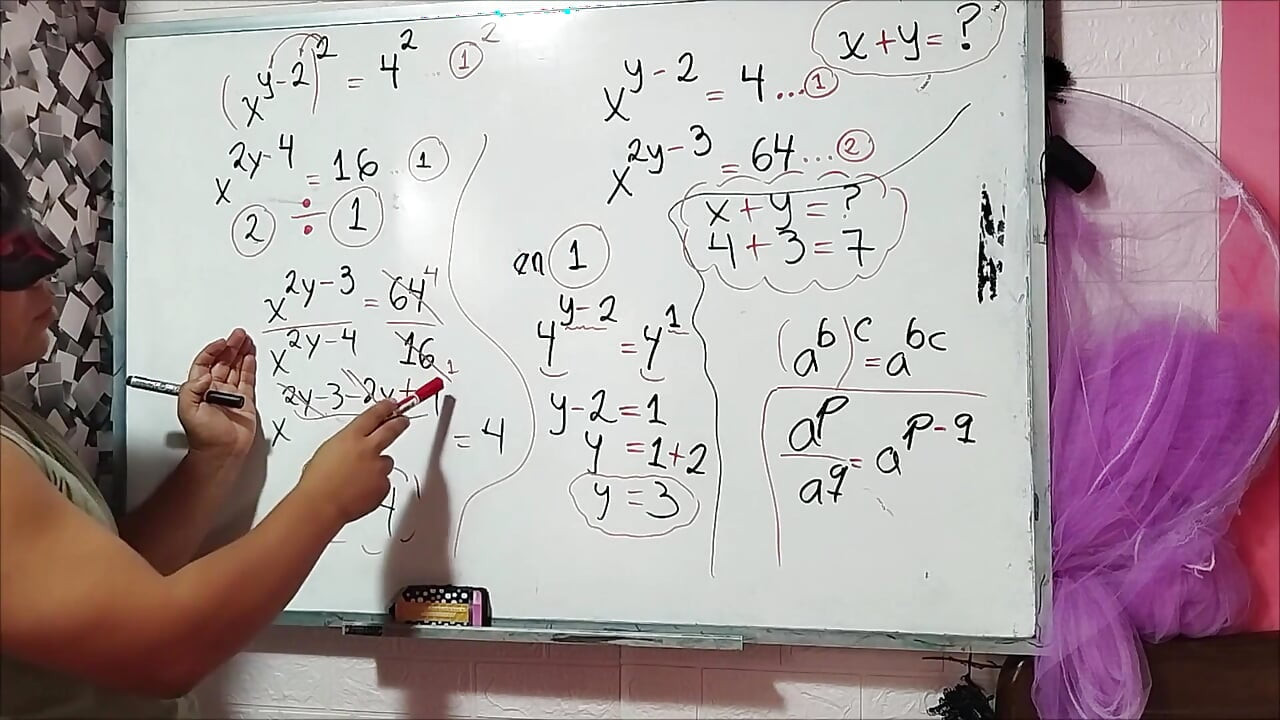 (x^{y-2})^2 = 4^2 ... ①^2
x^{2y-4} = 16 ... ①
② ÷ ①
x^{2y-3} / x^{2y-4} = 64^4 / 16^1
x^{2y-3-2y+4} = 4
4
x+y=?
x^{y-2} = 4 ... ①
x^{2y-3} = 64 ... ②
x+y=?
4+3=7
en ①
4^{y-2} = 4^1
y-2=1
y=1+2
y=3
(a^b)^c = a^{bc}
a^p / a^q = a^{p-q}